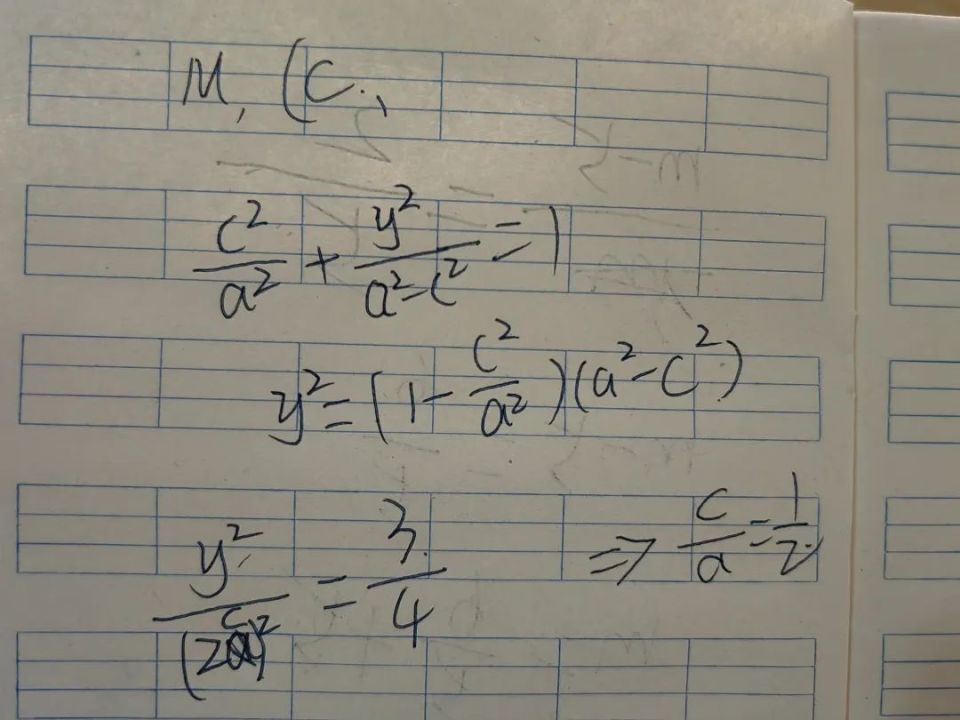 M, (C.,
c²/a² + y²/(a²-c²) = 1
y² = (1 - c²/a²)(a²-c²)
y²/(2c)² = 3/4 ⇒ c/a = 1/2